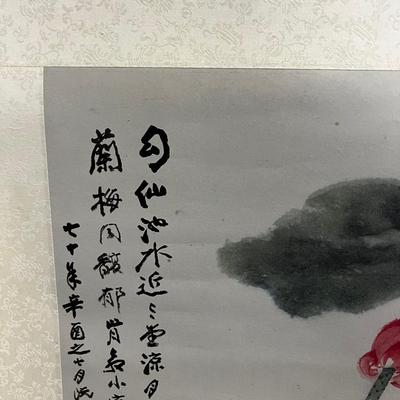 勾仙池水近〻堂涼月
蘭梅同馥郁肯為小
七十年辛酉之七月